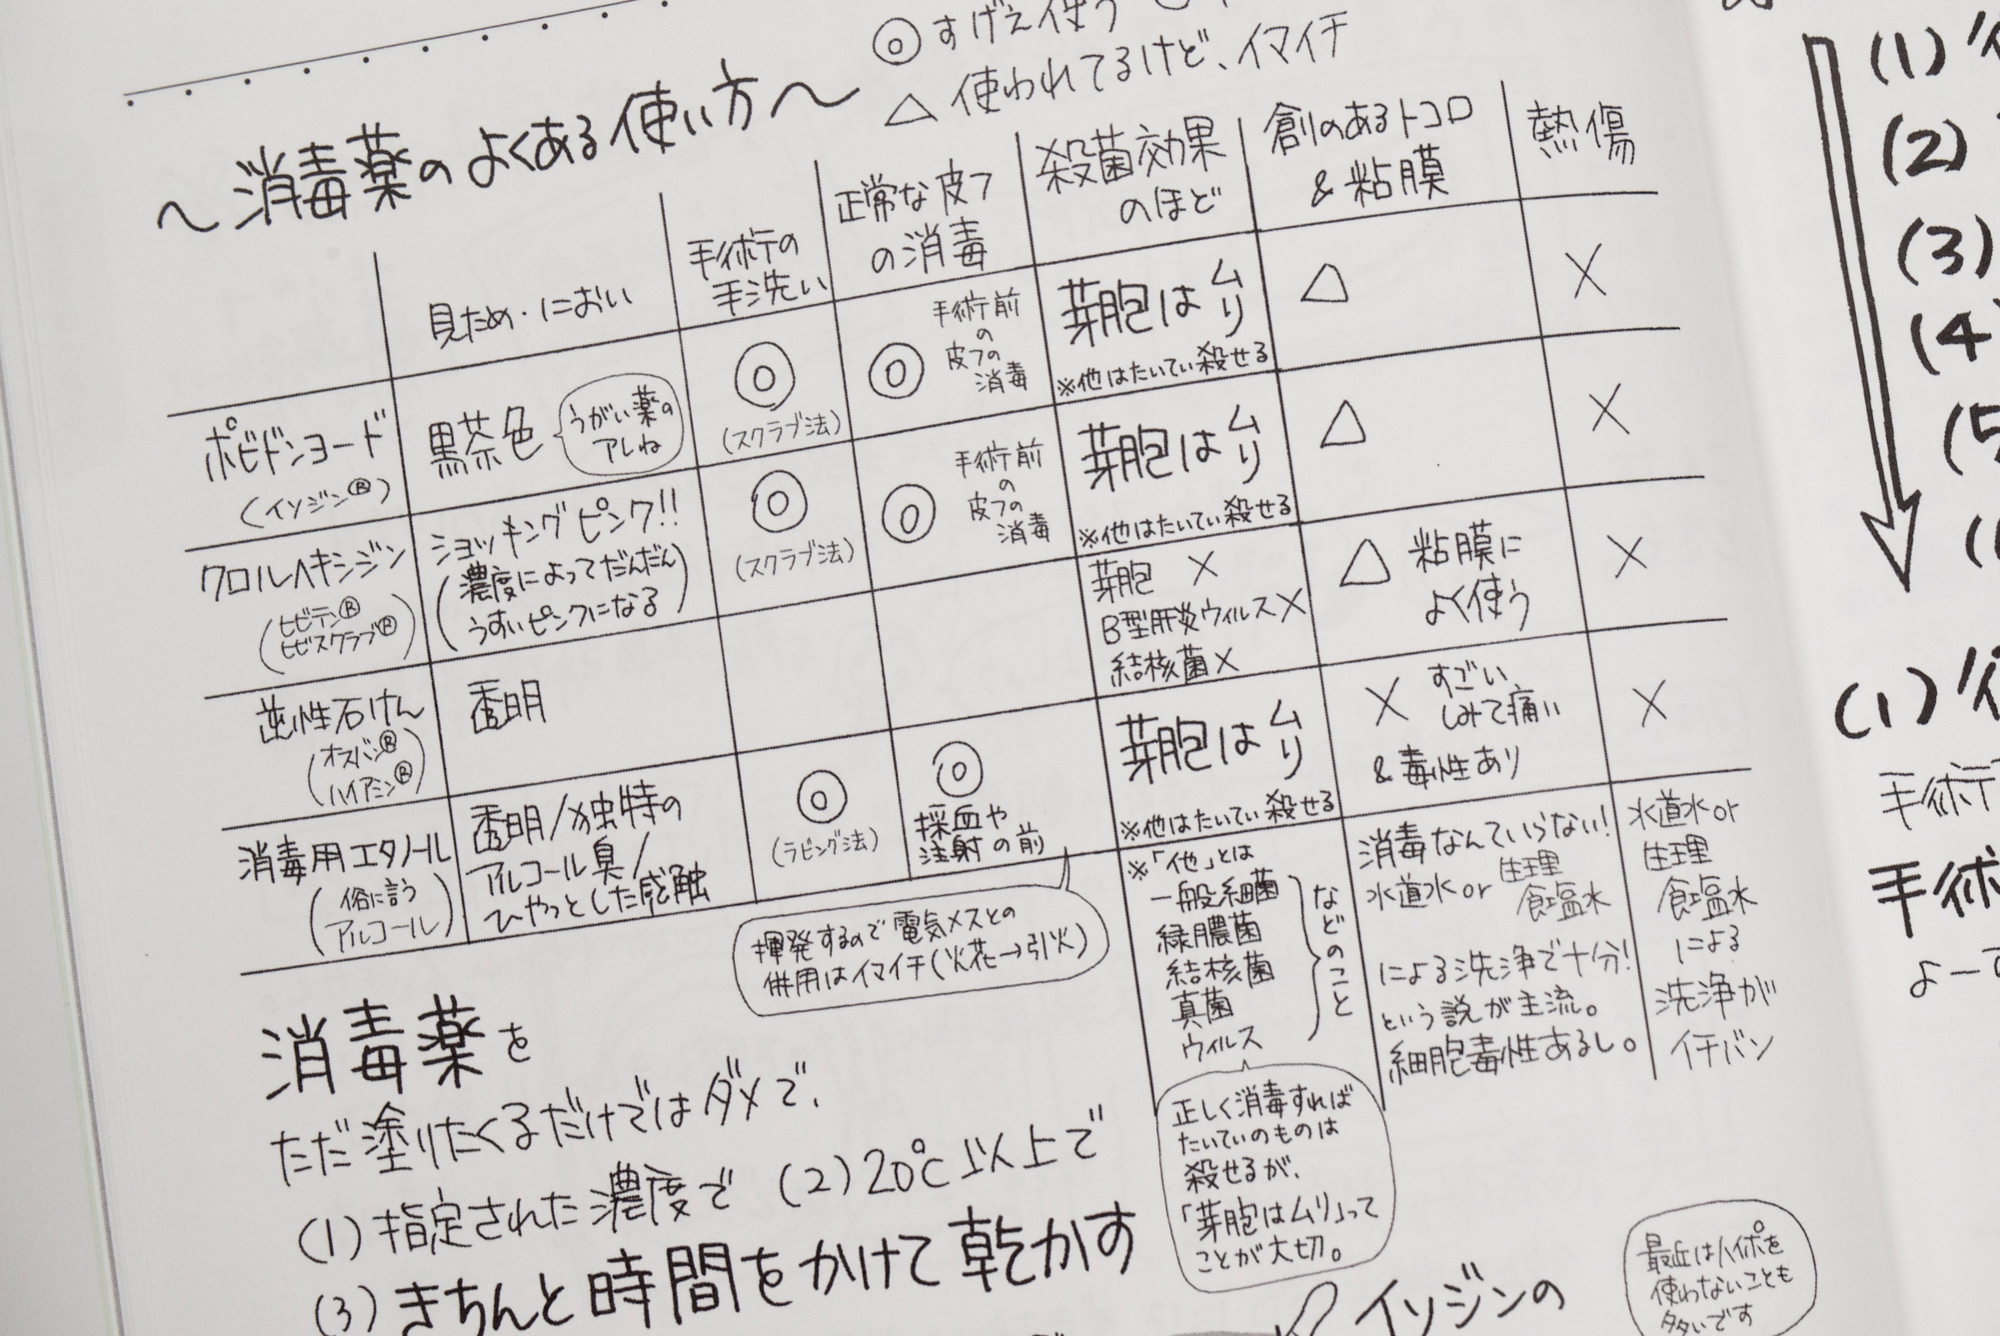 ◎ すげえ使う
△ 使われてるけど、イマイチ
〜消毒薬のよくある使い方〜
見ため・におい
手術の
手洗い
正常な皮フ
の消毒
殺菌効果
のほど
創のあるトコロ
&粘膜
熱傷
ポビドンヨード
(イソジン®)
黒茶色
うがい薬の
アレね
◎
(スクラブ法)
◎
手術前
の
皮フの
消毒
芽胞はムリ
※他はたいてい殺せる
△
×
クロルヘキシジン
(ヒビテン®
ヒビスクラブ®)
ショッキングピンク!!
(濃度によってだんだん
うすいピンクになる)
◎
(スクラブ法)
◎
手術前
の
皮フの
消毒
芽胞はムリ
※他はたいてい殺せる
△
×
逆性石けん
(オスバン®
ハイアミン®)
透明
芽胞 ×
B型肝炎ウィルス×
結核菌×
△ 粘膜に
よく使う
×
消毒用エタノール
(俗に言う
アルコール)
透明/独特の
アルコール臭/
ひやっとした感触
◎
(ラビング法)
◎
採血や
注射の前
芽胞はムリ
※他はたいてい殺せる
× すごい、
しみて痛い
&毒性あり
×
揮発するので電気メスとの
併用はイマイチ(火花→引火)
※「他」とは
一般細菌
緑膿菌
結核菌
真菌
ウィルス
などのこと
消毒なんていらない!
水道水or生理
食塩水
による洗浄で十分!
という説が主流。
細胞毒性あるし。
水道水or
生理
食塩水
による
洗浄が
イチバン
正しく消毒すれば
たいていのものは
殺せるが、
「芽胞はムリ」って
ことが大切。
消毒薬を
ただ塗りたくるだけではダメで、
(1)指定された濃度で (2)20℃以上で
(3)きちんと時間をかけて乾かす
イソジンの
最近はハイポを
使わないことも
多いです
(1)
(2)
(3)
(4)
(1)
手術
手術